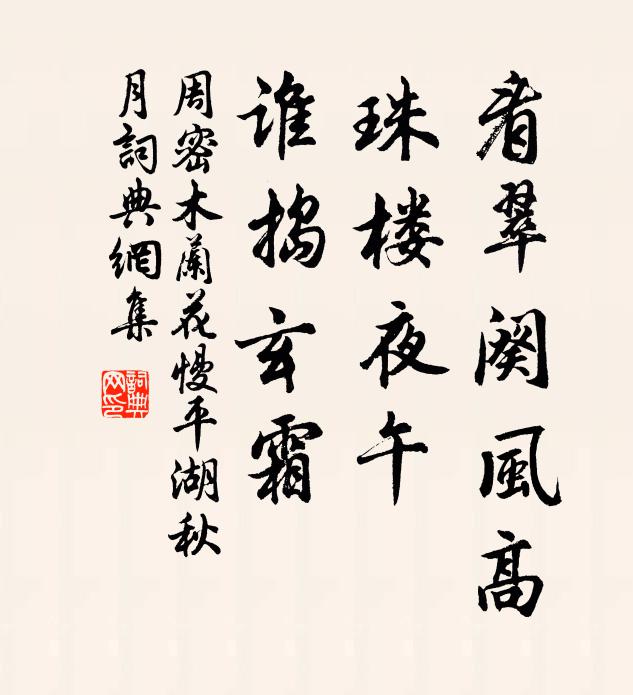 看翠阙風高
珠楼夜午
谁捣玄霜
周密木蘭花慢平湖秋
月詞典網集
詞典
网印